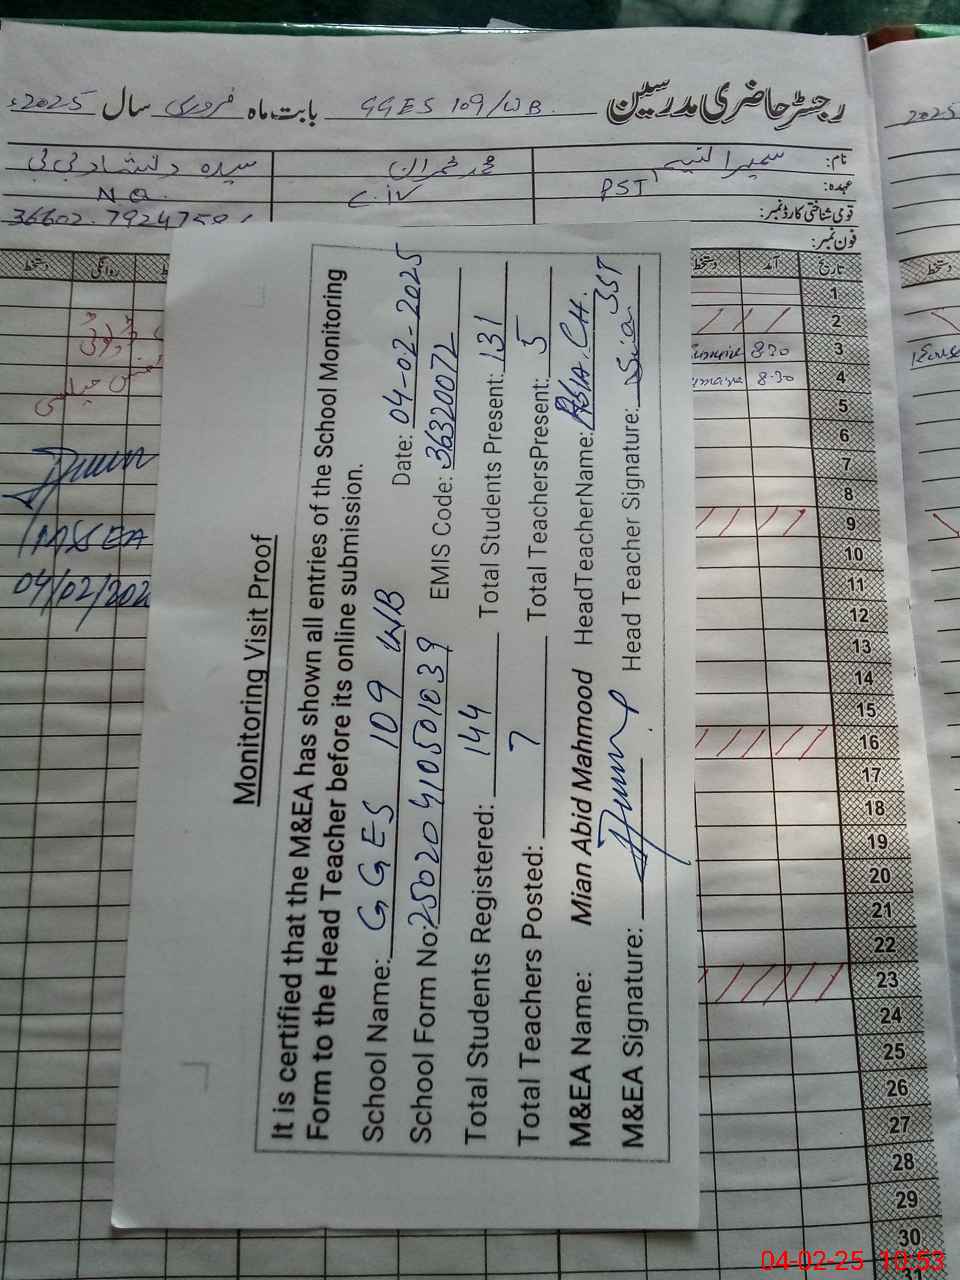 رجسٹر حاضری مدرسین GGES 109/WB. بابت ماہ فروری سال 2025ء
نام: سمیرا محمد عمران سیدہ دلشاد بی بی
عہدہ: PST C.IV N.Q.
قومی شناختی کارڈ نمبر:
فون نمبر:
تاریخ آمد دستخط
روانگی دستخط
1
2
3 8:30
4 8:30
5
6
7
8
9
10
11
12
13
14
15
16
17
18
19
20
21
22
23
24
25
26
27
28
29
30
31
M&EA
04/02/202
2025
دستخط
Monitoring Visit Proof
It is certified that the M&EA has shown all entries of the School Monitoring
Form to the Head Teacher before its online submission.
School Name: GGES 109 W/B Date: 04-02-2025
School Form No: 25020410501039 EMIS Code: 36320072
Total Students Registered: 144 Total Students Present: 131
Total Teachers Posted: 7 Total TeachersPresent: 5
M&EA Name: Mian Abid Mahmood HeadTeacherName: ASIA.CH.
M&EA Signature: Head Teacher Signature: Asia SST
04-02-25 10:53